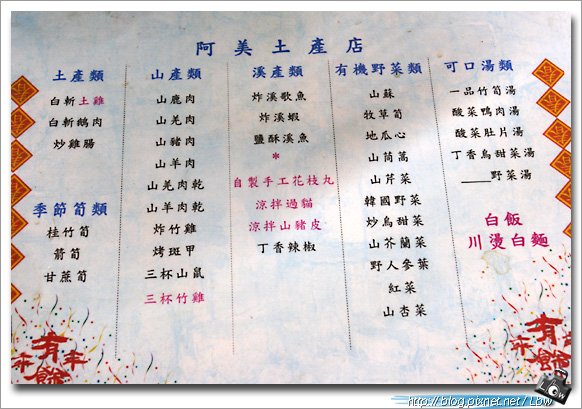 阿美土產店
土產類
白斬土雞
白斬鵝肉
炒雞腸
季節筍類
桂竹筍
箭筍
甘蔗筍
山產類
山鹿肉
山羌肉
山豬肉
山羊肉
山羌肉乾
山羊肉乾
炸竹雞
烤斑甲
三杯山鼠
三杯竹雞
溪產類
炸溪歌魚
炸溪蝦
鹽酥溪魚
*
自製手工花枝丸
涼拌過貓
涼拌山豬皮
丁香辣椒
有機野菜類
山蘇
牧草筍
地瓜心
山茼萵
山芹菜
韓國野菜
炒烏甜菜
山芥蘭菜
野人參葉
紅菜
山杏菜
可口湯類
一品竹筍湯
酸菜鴨肉湯
酸菜肚片湯
丁香烏甜菜湯
____野菜湯
白飯
川燙白麵
年年有餘
年年有餘
http://blog.pixnet.net/Lbw